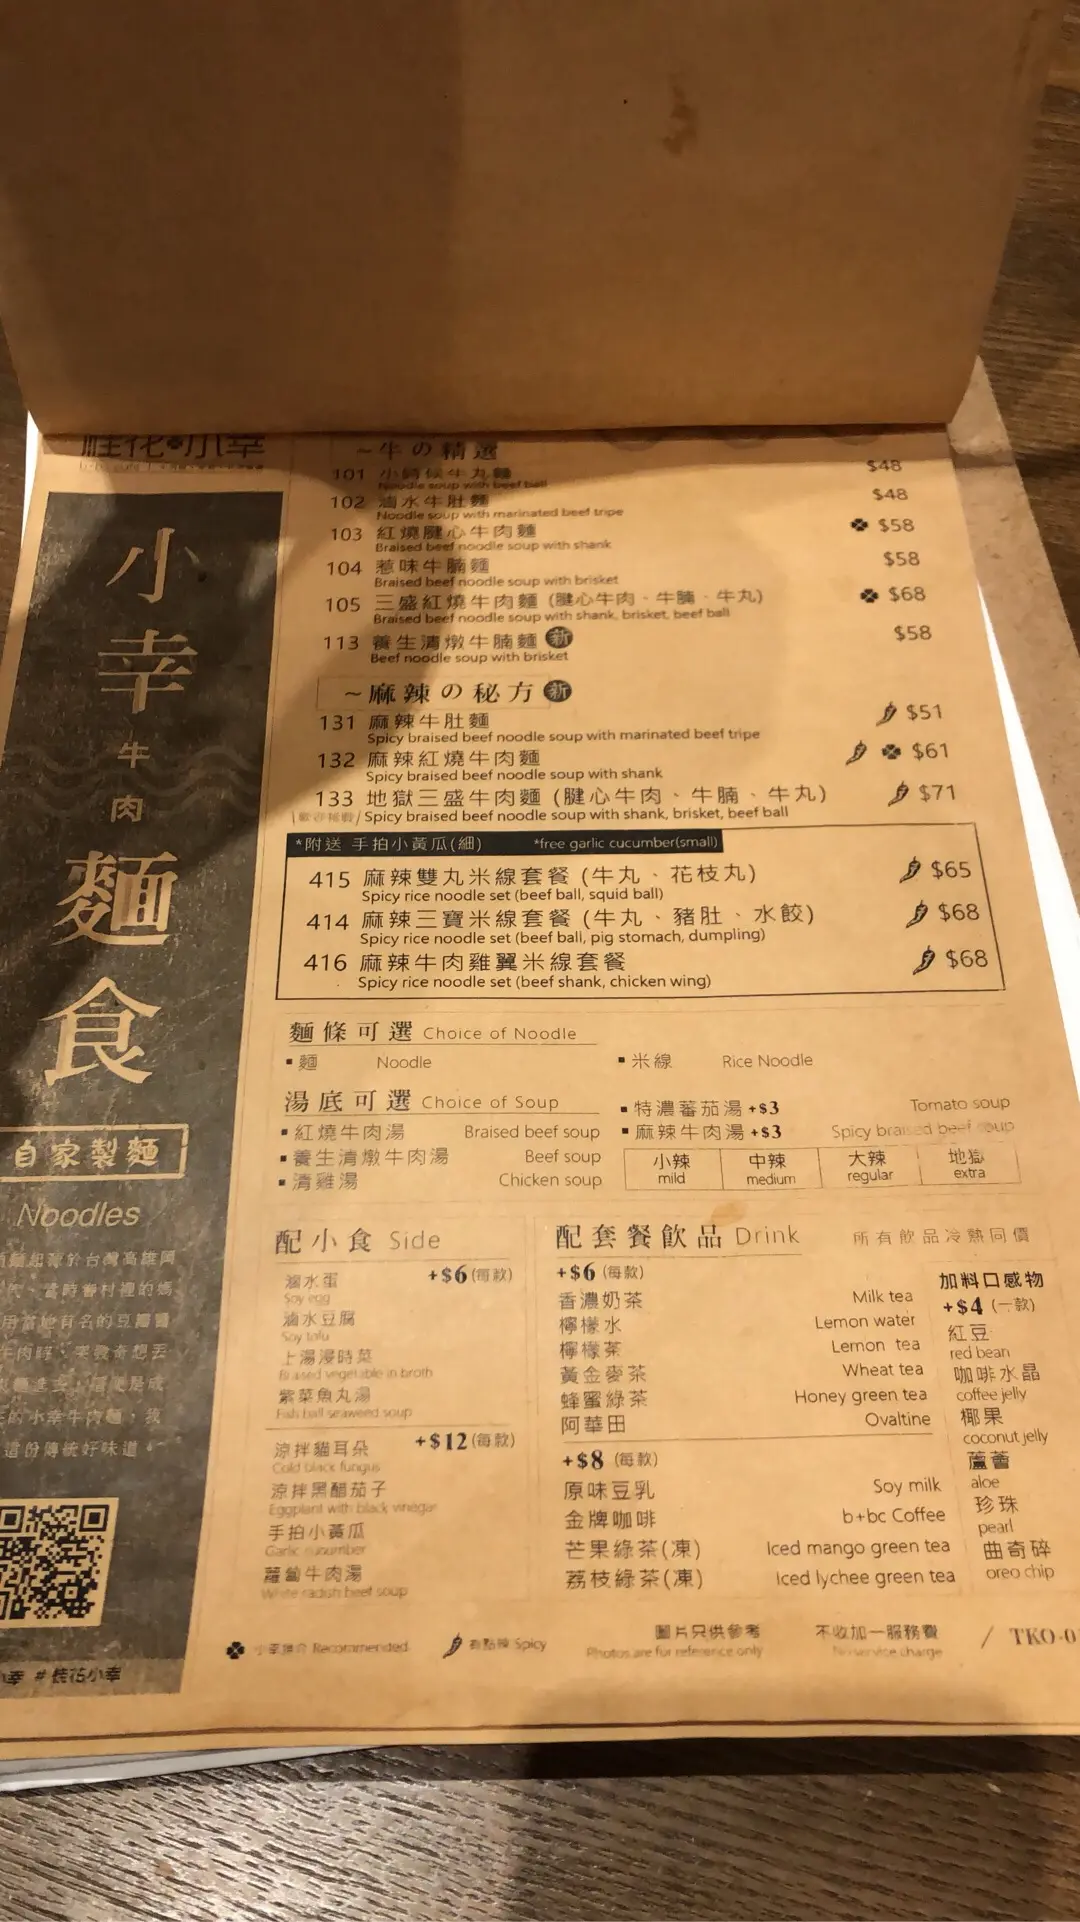 桂花小幸
小
幸
牛
肉
麵
食
自家製麵
Noodles
這份傳統好味道。
#桂花小幸
~牛の精選
101 小時候牛丸麵 $48
Noodle soup with beef ball
102 滷水牛肚麵 $48
Noodle soup with marinated beef tripe
103 紅燒腱心牛肉麵 $58
Braised beef noodle soup with shank
104 惹味牛腩麵 $58
Braised beef noodle soup with brisket
105 三盛紅燒牛肉麵 (腱心牛肉、牛腩、牛丸) $68
Braised beef noodle soup with shank, brisket, beef ball
113 養生清燉牛腩麵 新 $58
Beef noodle soup with brisket
~麻辣の秘方 新
131 麻辣牛肚麵 $51
Spicy braised beef noodle soup with marinated beef tripe
132 麻辣紅燒牛肉麵 $61
Spicy braised beef noodle soup with shank
133 地獄三盛牛肉麵 (腱心牛肉、牛腩、牛丸) $71
Spicy braised beef noodle soup with shank, brisket, beef ball
*附送 手拍小黃瓜(細) *free garlic cucumber(small)
415 麻辣雙丸米線套餐 (牛丸、花枝丸) $65
Spicy rice noodle set (beef ball, squid ball)
414 麻辣三寶米線套餐 (牛丸、豬肚、水餃) $68
Spicy rice noodle set (beef ball, pig stomach, dumpling)
416 麻辣牛肉雞翼米線套餐 $68
Spicy rice noodle set (beef shank, chicken wing)
麵條可選 Choice of Noodle
▪麵 Noodle ▪米線 Rice Noodle
湯底可選 Choice of Soup
▪紅燒牛肉湯 Braised beef soup
▪養生清燉牛肉湯 Beef soup
▪清雞湯 Chicken soup
▪特濃蕃茄湯 +$3 Tomato soup
▪麻辣牛肉湯 +$3 Spicy braised beef soup
小辣 中辣 大辣 地獄
mild medium regular extra
配小食 Side
+$6 (每款)
滷水蛋
Soy egg
滷水豆腐
Soy tofu
上湯浸時菜
Braised vegetable in broth
紫菜魚丸湯
Fish ball seaweed soup
+$12 (每款)
涼拌貓耳朵
Cold black fungus
涼拌黑醋茄子
Eggplant with black vinegar
手拍小黃瓜
Garlic cucumber
蘿蔔牛肉湯
White radish beef soup
配套餐飲品 Drink 所有飲品冷熱同價
+$6 (每款)
香濃奶茶 Milk tea
檸檬水 Lemon water
檸檬茶 Lemon tea
黃金麥茶 Wheat tea
蜂蜜綠茶 Honey green tea
阿華田 Ovaltine
+$8 (每款)
原味豆乳 Soy milk
金牌咖啡 b+bc Coffee
芒果綠茶(凍) Iced mango green tea
荔枝綠茶(凍) Iced lychee green tea
加料口感物
+$4 (一款)
紅豆
red bean
咖啡水晶
coffee jelly
椰果
coconut jelly
蘆薈
aloe
珍珠
pearl
曲奇碎
oreo chip
小幸推介 Recommended 有點辣 Spicy 圖片只供參考 不收加一服務費 / TKO-0
Photos are for reference only No service charge